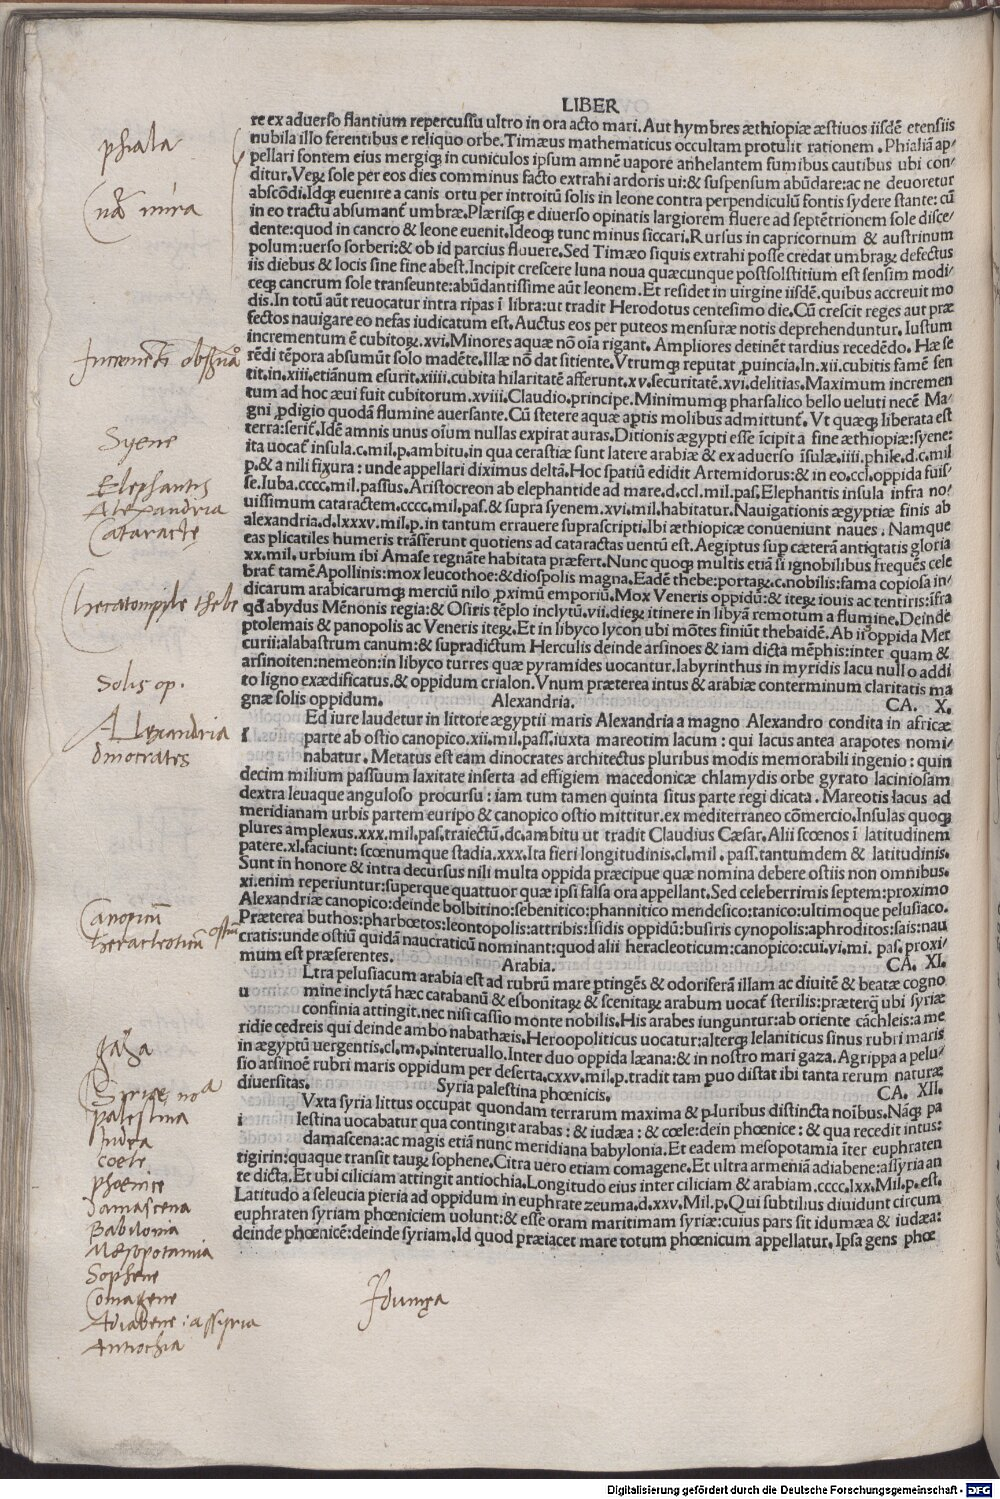 LIBER
re ex aduerso flantium repercussu ultro in ora acto mari. Aut hymbres æthiopiæ æstiuos iisdẽ etensiis
nubila illo ferentibus e reliquo orbe. Timæus mathematicus occultam protulit rationem. Phialiã ap-
pellari fontem eius mergiqꝫ in cuniculos ipsum amnẽ uapore anhelantem fumibus cautibus ubi con-
ditur. Veꝝ sole per eos dies comminus facto extrahi ardoris ui: & suspensum abũdare: ac ne deuoretur
abscõdi. Idqꝫ euenire a canis ortu per introitũ solis in leone contra perpendiculũ fontis sydere stante: cũ
in eo tractu absumant̃ umbræ. Plærisqꝫ e diuerso opinatis largiorem fluere ad septẽtrionem sole disce-
dente: quod in cancro & leone euenit. Ideoqꝫ tunc minus siccari. Rursus in capricornum & austrinum
polum: uerso sorberi: & ob id parcius flouere. Sed Timæo siquis extrahi posse credat umbraꝝ defectus
iis diebus & locis sine fine abest. Incipit crescere luna noua quæcunque postsolstitium est sensim modi-
ceqꝫ cancrum sole transeunte: abũdantissime aũt leonem. Et residet in uirgine iisdẽ. quibus accreuit mo
dis. In totũ aũt reuocatur intra ripas ĩ libra: ut tradit Herodotus centesimo die. Cũ crescit reges aut præ
fectos nauigare eo nefas iudicatum est. Auctus eos per puteos mensuræ notis deprehenduntur. Iustum
incrementum ẽ cubitoꝝ. xvi. Minores aquæ nõ oĩa rigant. Ampliores detinẽt tardius recedẽdo. Hæ se
rẽdi tẽpora absumũt solo madẽte. Illæ nõ dat sitiente. Vtrumqꝫ reputat ꝓuincia. In. xii. cubitis famẽ sen
tit. in. xiii. etiãnum esurit. xiiii. cubita hilaritatẽ afferunt. xv. securitatẽ. xvi. delitias. Maximum incremen
tum ad hoc æui fuit cubitorum. xviii. Claudio. principe. Minimumqꝫ pharsalico bello ueluti necẽ Ma-
gni ꝓdigio quodã flumine auersante. Cũ stetere aquæ aptis molibus admittunt̃. Vt quæqꝫ liberata est
terra: serit̃. Idẽ amnis unus oĩum nullas expirat auras. Ditionis ægypti esse ĩcipit a fine æthiopiæ: syene:
ita uocat̃ insula. c. mil. p. ambitu. in qua cerastiæ sunt latere arabiæ & ex aduerso ĩsulæ. iiii. phile. d. c. mil
p. & a nili fixura: unde appellari diximus deltã. Hoc spatiũ edidit Artemidorus: & in eo. ccl. oppida fuis-
se. Iuba. cccc. mil. passus. Aristocreon ab elephantide ad mare. d. ccl. mil. pas. Elephantis insula infra no-
uissimum cataractem. cccc. mil. pas. & supra syenem. xvi. mil. habitatur. Nauigationis ægyptiæ finis ab
alexandria. d. lxxxv. mil. p. in tantum errauere suprascripti. Ibi æthiopicæ conueniunt naues. Namque
eas plicatiles humeris trãsferunt quotiens ad cataractas uentũ est. Aegiptus suꝑ cæterã antiqtatis gloria
xx. mil. urbium ibi Amase regnãte habitata præfert. Nunc quoqꝫ multis etiã si ignobilibus frequẽs cele
brat̃ tamẽ Apollinis: mox leucothoe: & diospolis magna. Eadẽ thebe: portaꝝ. c. nobilis: fama copiosa in-
dicarum arabicarumqꝫ merciũ nilo ꝓximũ emporiũ. Mox Veneris oppidũ: & iteꝝ iouis ac tentiris: ĩfra
qđ abydus Mẽnonis regia: & Osiris tẽplo inclytũ. vii. dieꝝ itinere in libyã remotum a flumine. Deinde
ptolemais & panopolis ac Veneris iteꝝ. Et in libyco lycon ubi mõtes finiũt thebaidẽ. Ab ii oppida Mer
curii: alabastrum canum: & supradictum Herculis deinde arsinoes & iam dicta mẽphis: inter quam &
arsinoiten: nemeon: in libyco turres quæ pyramides uocantur. labyrinthus in myridis lacu nullo addi
to ligno exædificatus. & oppidum crialon. Vnum præterea intus & arabiæ conterminum claritatis ma
gnæ solis oppidum. Alexandria. CA. X.
Ed iure laudetur in littore ægyptii maris Alexandria a magno Alexandro condita in africæ
parte ab ostio canopico. xii. mil. pass. iuxta mareotim lacum: qui lacus antea arapotes nomi-
nabatur. Metatus est eam dinocrates architectus pluribus modis memorabili ingenio: quin
decim milium passuum laxitate inserta ad effigiem macedonicæ chlamydis orbe gyrato laciniosam
dextra leuaque anguloso procursu: iam tum tamen quinta situs parte regi dicata. Mareotis lacus ad
meridianam urbis partem euripo & canopico ostio mittitur. ex mediterraneo cõmercio. Insulas quoqꝫ
plures amplexus. xxx. mil. pas. traiectũ. dc. ambitu ut tradit Claudius Cæsar. Alii scœnos ĩ latitudinem
patere. xl. faciunt: scœnumque stadia. xxx. Ita fieri longitudinis. cl. mil. pass. tantumdem & latitudinis.
Sunt in honore & intra decursus nili multa oppida præcipue quæ nomina debere ostiis non omnibus.
xi. enim reperiuntur: superque quattuor quæ ipsi falsa ora appellant. Sed celeberrimis septem: proximo
Alexandriæ canopico: deinde bolbitino: sebenitico: phannitico mendesico: tanico: ultimoque pelusiaco.
Præterea buthos: pharbœtos: leontopolis: attribis: Isidis oppidũ: busiris cynopolis: aphroditos: sais: nau
cratis: unde ostiũ quidã naucraticũ nominant: quod alii heracleoticum: canopico: cui. vi. mi. pas. proxi-
mum est præferentes. Arabia. CA. XI.
Ltra pelusiacum arabia est ad rubrũ mare ptingẽs & odoriferã illam ac diuitẽ & beatæ cogno
u mine inclytã hæc catabanũ & esbonitaꝝ & scenitaꝝ arabum uocat̃ sterilis: præterq̃ ubi syriæ
confinia attingit. nec nisi cassio monte nobilis. His arabes iunguntur: ab oriente cãchleis: a me
ridie cedreis qui deinde ambo nabathæis. Heroopoliticus uocatur: alterqꝫ lelaniticus sinus rubri maris
in ægyptũ uergentis. cl. m. p. interuallo. Inter duo oppida læana: & in nostro mari gaza. Agrippa a pelu-
sio arsinoẽ rubri maris oppidum per deserta. cxxv. mil. p. tradit tam puo distat ibi tanta rerum naturæ
diuersitas. Syria palestina phœnicis. CA. XII.
Vxta syria littus occupat quondam terrarum maxima & pluribus distincta noĩbus. Nãqꝫ pa
i lestina uocabatur qua contingit arabas: & iudæa: & cœle: dein phœnice: & qua recedit intus:
damascena: ac magis etiã nunc meridiana babylonia. Et eadem mesopotamia ĩter euphraten
tigirin: quaque transit tauꝝ sophene. Citra uero etiam comagene. Et ultra armeniã adiabene: assyria an
te dicta. Et ubi ciliciam attingit antiochia. Longitudo eius inter ciliciam & arabiam. cccc. lxx. Mil. p. est.
Latitudo a seleucia pieria ad oppidum in euphrate zeuma. d. xxv. Mil. p. Qui subtilius diuidunt circum
euphraten syriam phœniciem uolunt: & esse oram maritimam syriæ: cuius pars sit idumæa & iudæa:
deinde phœnicẽ: deinde syriam. Id quod præiacet mare totum phœnicum appellatur. Ipsa gens phœ
phiala
mira
Incrementi
Syene
Elephantis
Alexandria
Cataractę
hecatompyle thebe
Solis op.
Alexandria
dinocrates
Canopicũ
heracleoticũ ostiũ
Gaza
Syriæ noa
palestina
Iudea
coele
phoenice
Damascena
Babilonia
Mesopotamia
Sophene
Comagene
Adiabene: assyria
Antiochia
Idumęa
Digitalisierung gefördert durch die Deutsche Forschungsgemeinschaft - DFG